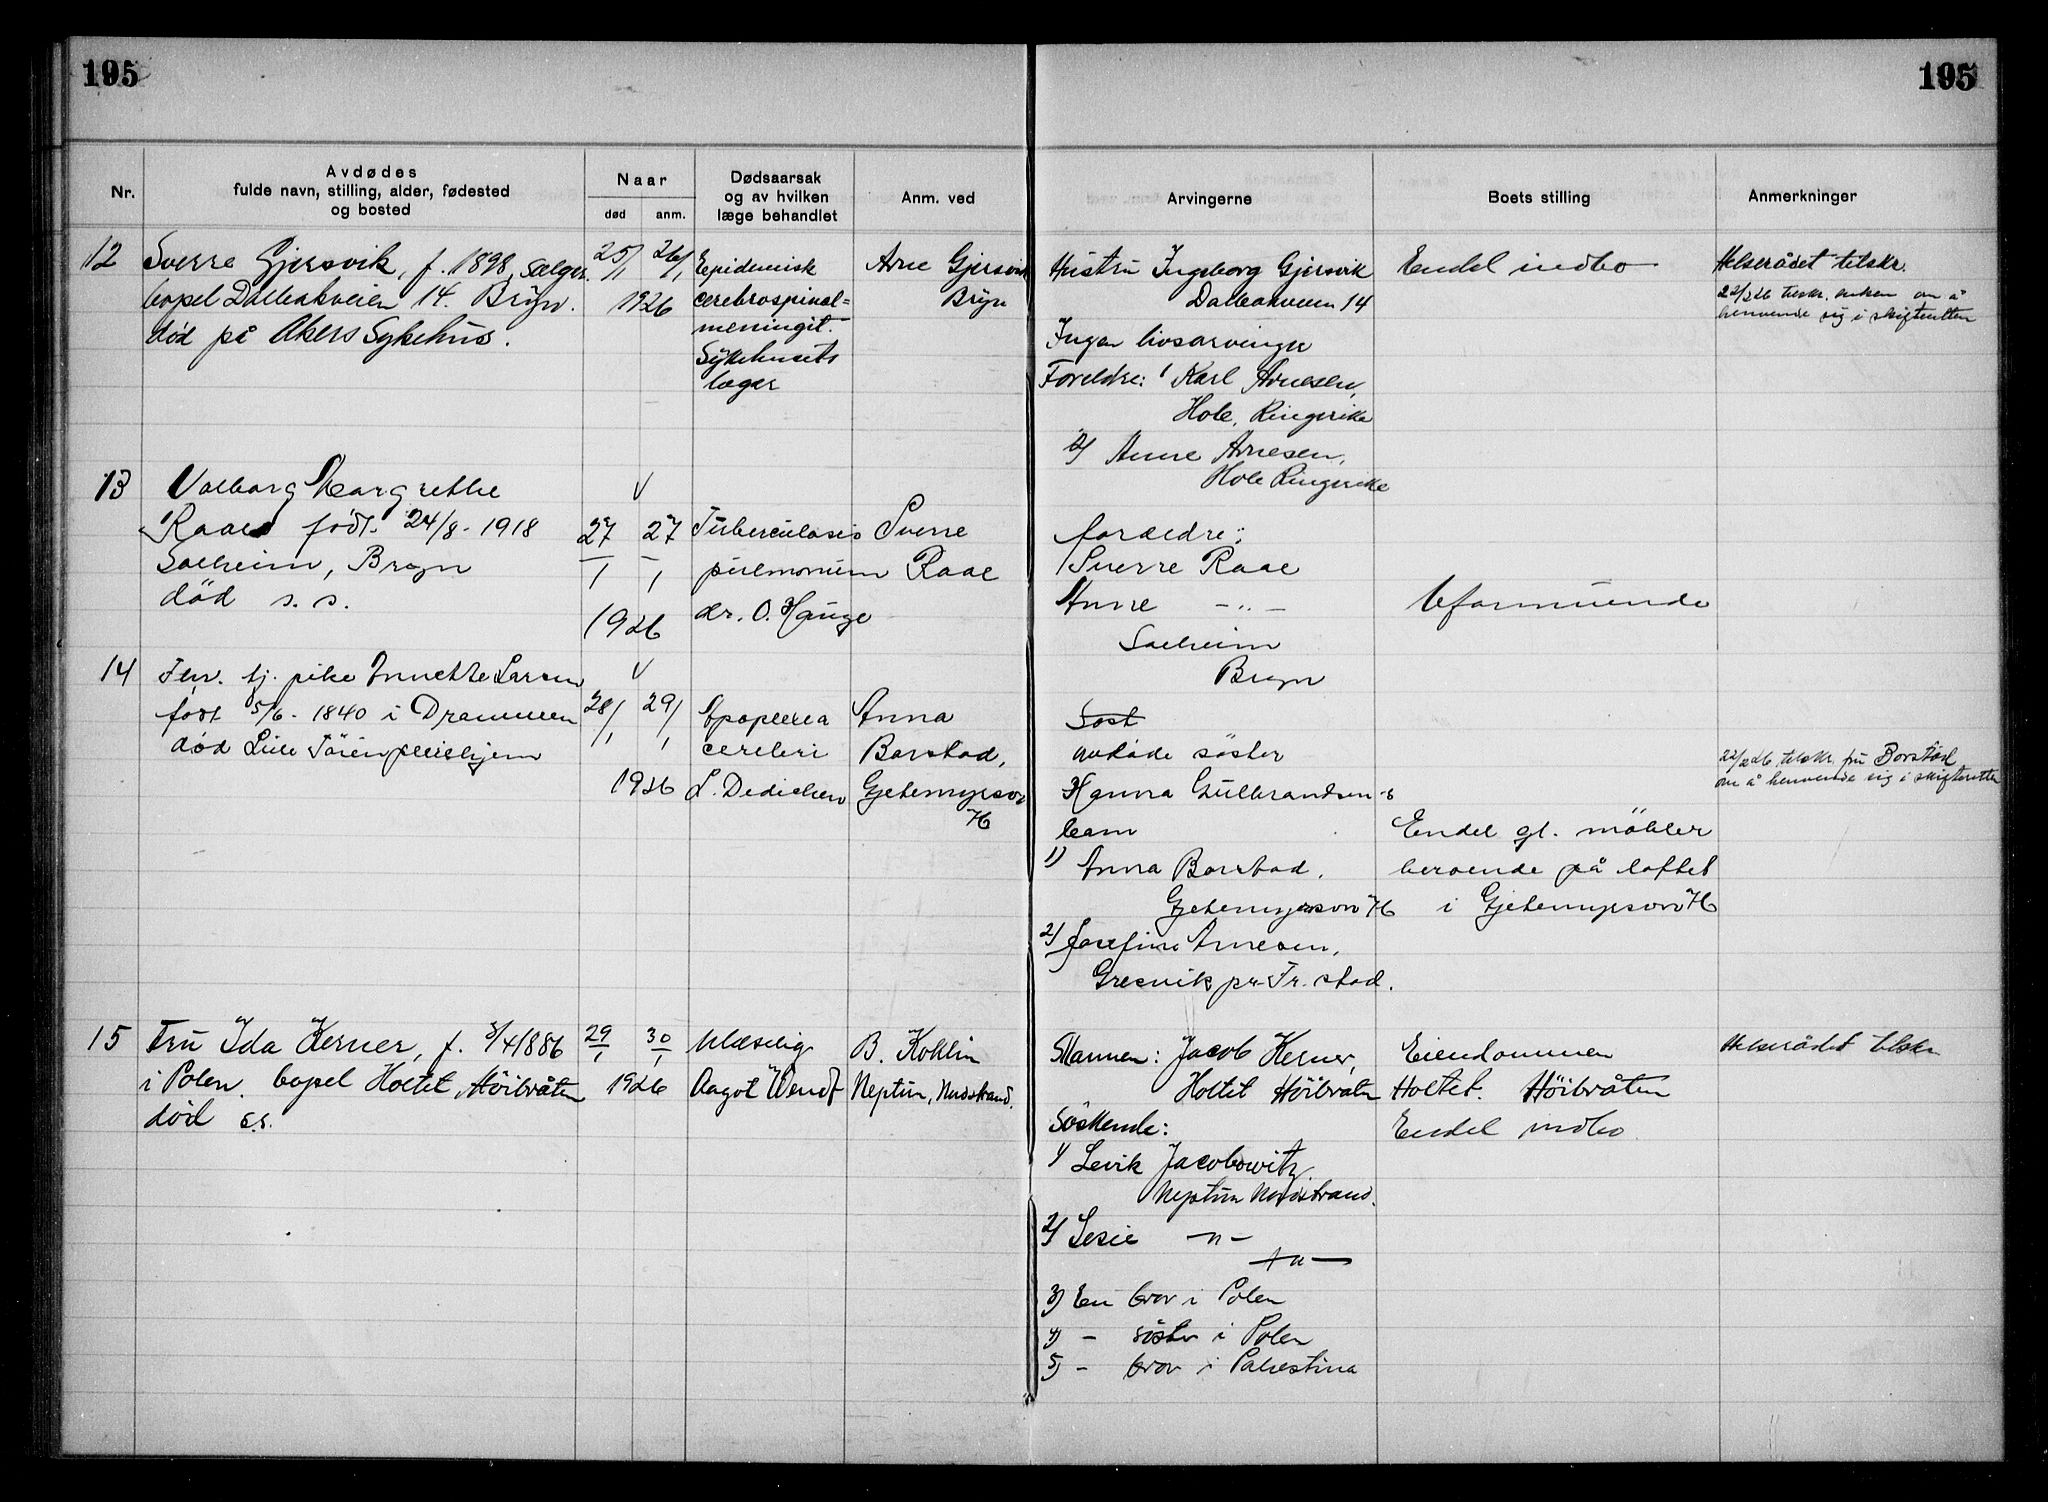 195
195
Nr.
Avdødes
fulde navn, stilling, alder, fødested
og bosted
Naar
død
anm.
Dødsaarsak
og av hvilken
læge behandlet
Anm. ved
Arvingerne
Boets stilling
Anmerkninger
12
Sverre Gjersvik, f. 1898, sælger.
bopel Dalbakveien 14. Bryn.
død på Akers Sykehus.
25/1 26/1
1926
Epidemisk
cerebrospinal=
meningit.
Sykehusets
læger
Arne Gjersvik
Bryn
Hustru Ingeborg Gjersvik
Dalbakveien 14
Ingen livsarvinger
Foreldre: 1 Karl Arnesen,
Hole, Ringerike
2) Anne Arnesen,
Hole Ringerike
Endel indbo
Helserådet tilskr.
22/2 26 tilskr. enken om å
henvende sig i skifteretten
13
Valborg Margrethe
Raae født 24/8 - 1918
Solheim, Bryn
død s. s.
V
27 27
1 1
1926
Tuberculosis
pulmonum
dr. O. Hauge
Sverre
Raae
forældre:
Sverre Raae
Anne - " -
Solheim
Bryn
Uformuende
14
Fhv. tj. pike Annette Larsen
født 5/6 - 1840 i Drammen
død Lille Tøien pleiehjem
V
28/1 29/1
1926
Apoplexia
cerebri
L. Dedichen
Anna
Borstad,
Gjetemyrsvn
76
Søst
avdøde søster
Hanna Gulbrandsen's
barn
1) Anna Borstad,
Gjetemyrsvn 76
2) Josefine Arnesen,
Gresvik pr Fr. stad.
Endel gl. møbler
beroende på loftet
i Gjetemyrsvn 76
22/2 26 tilskr. fru Borstad
om å henvende sig i skifteretten
15
Fru Ida Kerner, f. 3/4 1886
i Polen. bopel Holtet, Høibråten
død s.s.
29/1 30/1
1926
Ulæselig
Aagot Wendt
B. Koklin
Neptun, Nordstrand.
Mannen: Jacob Kerner,
Holtet Høibråten
Søskende:
1) Levik Jacobowitz
Neptun Nordstrand.
2) Lesie - " -
- " -
3) En bror i Polen
4) - søster i Polen
5) - bror i Palestina
Eiendommen
Holtet. Høibråten
Endel indbo.
Helserådet tilskr.